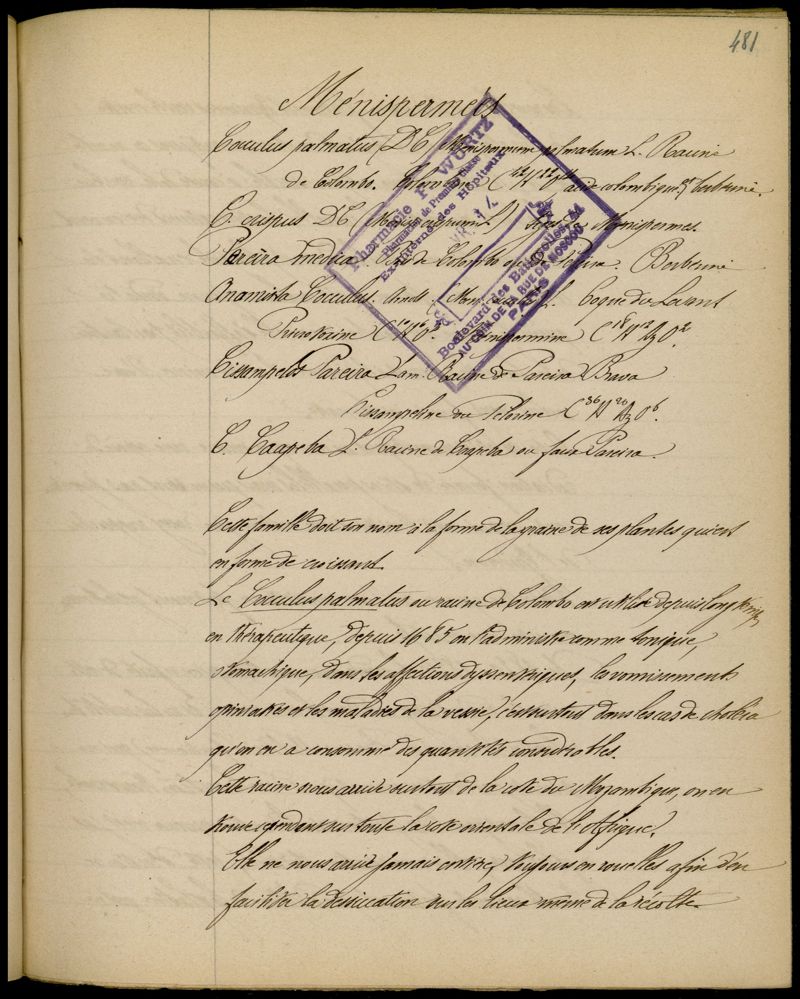 481
Ménispermées
Cocculus palmatus (DC) Menispermum palmatum L. Racine
de Colombo. Colombine C⁴²H²²O¹⁴ acide colombique et berberine.
C. crispus DC (Menisp. crispum L.) Ménispermes.
Pareira medica. de Colombo ou Berberine
Anamirta Cocculus. Arndt. (Men. L. Coque du Levant
Picrotoxine C¹⁰H⁶O⁴ Menispermine C¹⁸H¹²AzO².
Cissampelos Pareira Lam. Racine de Pareira Brava
Cissampeline ou Pelosine C³⁶H²⁰AzO⁶.
C. Caapeba L. Racine de Caapeba ou faux Pareira.
Cette famille doit son nom à la forme de la graine de ses plantes qui est
en forme de croissant.
Le Cocculus palmatus ou racine de Colombo est utilisé depuis longtemps
en thérapeutique, depuis 1685 on l'administre comme tonique,
stomachique, dans les affections dyssentériques, les vomissements
opiniatres et les maladies de la vessie, c'est surtout dans les cas de choléra
qu'on en a consommé des quantités considérables.
Cette racine nous arrive surtout de la côte du Mozambique, on en
trouve cependant sur toute la côte orientale de l'Afrique.
Elle ne nous arrive jamais entière, toujours en rouelles afin d'en
faciliter la dessiccation sur les lieux même de la récolte.
Pharmacie P. WURTZ
Pharmacien de Première Classe
Ex-Interne des Hôpitaux
Boulevard des Batignolles, 84
AU COIN DE LA RUE DE MOSCOU
PARIS